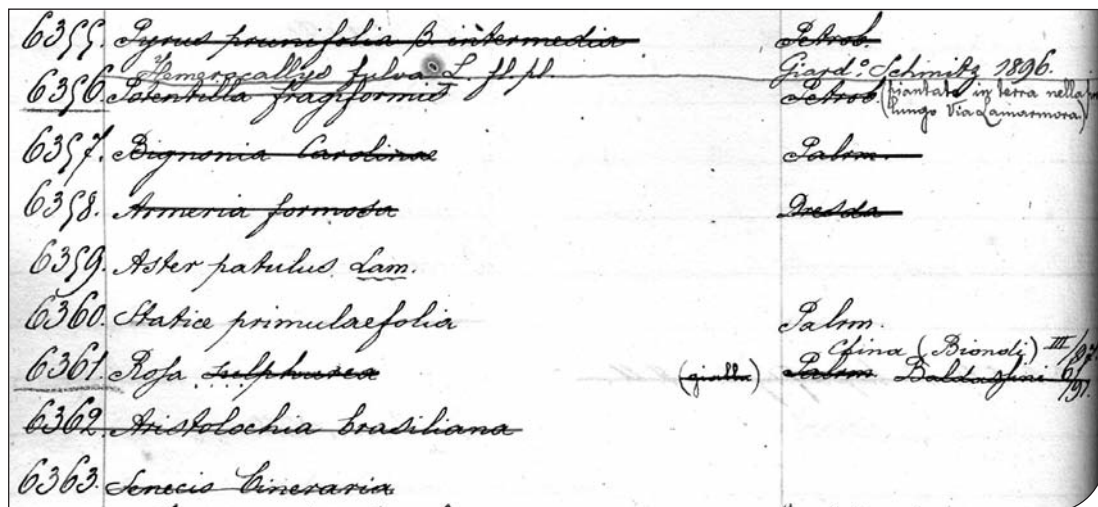 6355. Pyrus prunifolia β intermedia Petrob.
Hemerocallys fulva L. fl. pl. Giard.º Schmitz 1896.
6356. Potentilla fragiformis Petrob. (piantate in terra nella
lungo Via Lamarmora)
6357. Bignonia Carolinae Palrm.
6358. Armeria formosa Dresda
6359. Aster patulus Lam.
6360. Statice primulaefolia Palrm.
China (Biondi) III/97.
6361. Rosa sulphurea (gialla) Palrm Baldasseini 6/91.
6362. Aristolochia brasiliana
6363. Senecio Cineraria